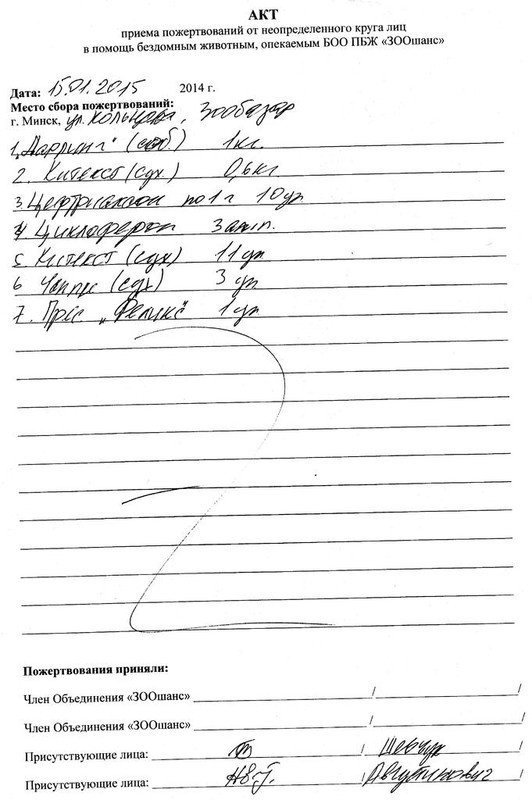 АКТ
приема пожертвований от неопределенного круга лиц
в помощь бездомным животным, опекаемым БОО ПБЖ «ЗООшанс»
Дата: 15.01.2015 2014 г.
Место сбора пожертвований:
г. Минск, ул. Кольцова, Зообазар
1. „Дарлинг“ (соб.) 1 кг.
2. Китекет (сух) 0,6 кг
3. Цефтриаксон по 1 г 10 уп
4 Циклоферон 3 амп.
5. Китекет (сух) 11 уп
6 Чаппи (сух) 3 уп
7. Прес „Феликс“ 1 уп
Пожертвования приняли:
Член Объединения «ЗООшанс» / /
Член Объединения «ЗООшанс» / /
Присутствующие лица: / Шевчук /
Присутствующие лица: / Августинович /